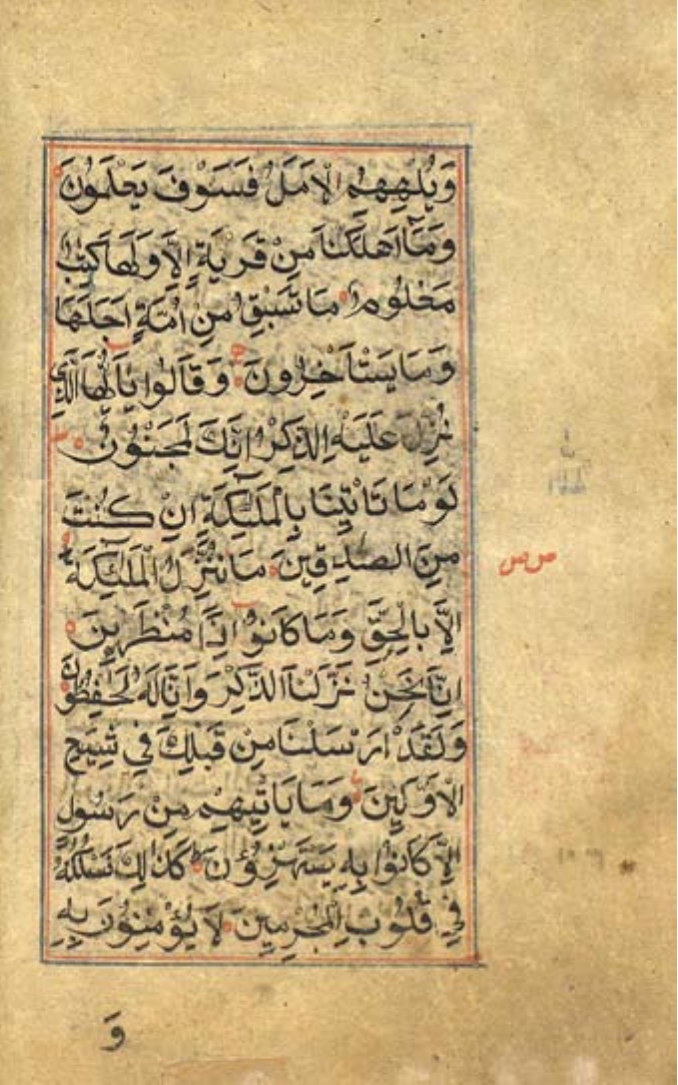 وَيُلْهِهِمُ الْاَمَلُ فَسَوْفَ يَعْلَمُونَ
وَمَآ اَهْلَكْنَا مِنْ قَرْيَةٍ اِلَّا وَلَهَا كِتَابٌ
مَعْلُومٌ مَا تَسْبِقُ مِنْ اُمَّةٍ اَجَلَهَا
وَمَا يَسْتَاْخِرُونَ وَقَالُوا يٰٓاَيُّهَا الَّذِي
نُزِّلَ عَلَيْهِ الذِّكْرُ اِنَّكَ لَمَجْنُونٌ
لَوْ مَا تَاْتِينَا بِالْمَلٰٓئِكَةِ اِنْ كُنْتَ
مِنَ الصّٰدِقِينَ مَا نُنَزِّلُ الْمَلٰٓئِكَةَ
اِلَّا بِالْحَقِّ وَمَا كَانُوٓا اِذًا مُنْظَرِينَ
اِنَّا نَحْنُ نَزَّلْنَا الذِّكْرَ وَاِنَّا لَهُ لَحٰفِظُونَ
وَلَقَدْ اَرْسَلْنَا مِنْ قَبْلِكَ فِي شِيَعِ
الْاَوَّلِينَ وَمَا يَاْتِيهِمْ مِنْ رَسُولٍ
اِلَّا كَانُوا بِهِ يَسْتَهْزِؤُنَ كَذٰلِكَ نَسْلُكُهُ
فِي قُلُوبِ الْمُجْرِمِينَ لَا يُؤْمِنُونَ بِهِ
وَ